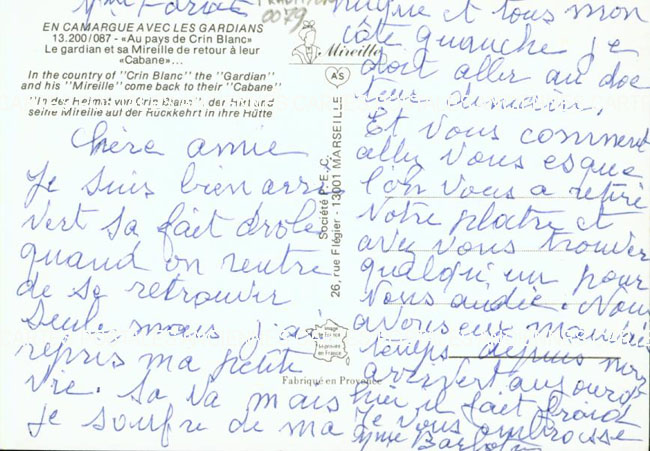 0079
EN CAMARGUE AVEC LES GARDIANS
13.200/087 - «Au pays de Crin Blanc»
Le gardian et sa Mireille de retour à leur
«Cabane»...
In the country of "Crin Blanc" the "Gardian"
and his "Mireille" come back to their "Cabane"
"In der Heimat von Crin Blanc", der Hirt und
seine Mireille auf der Rückkehrt in ihre Hütte
Mireille
AS
Société P.E.C.
26, rue Flégier - 13001 MARSEILLE
Image de France
Imprimé en France
Fabriqué en Provence
Chère amie
Je suis bien arri
vert sa fait drole
quand on rentre
de se retrouvir
seule mais j'ai
repris ma petite
vie. Sa va mais
Je soufre de ma
et tous mon
côte gauche je
doit aller au doc
teur
Et vous comment
allez vous esque
l'on vous a retiré
votre platre et
avez vous trouver
qualqu'un pour
vous aidée. Nous
avous eux mauvais
temps depuis mon
arrivert aujourd
hier il fait froid
Je vous embrasse
Mme